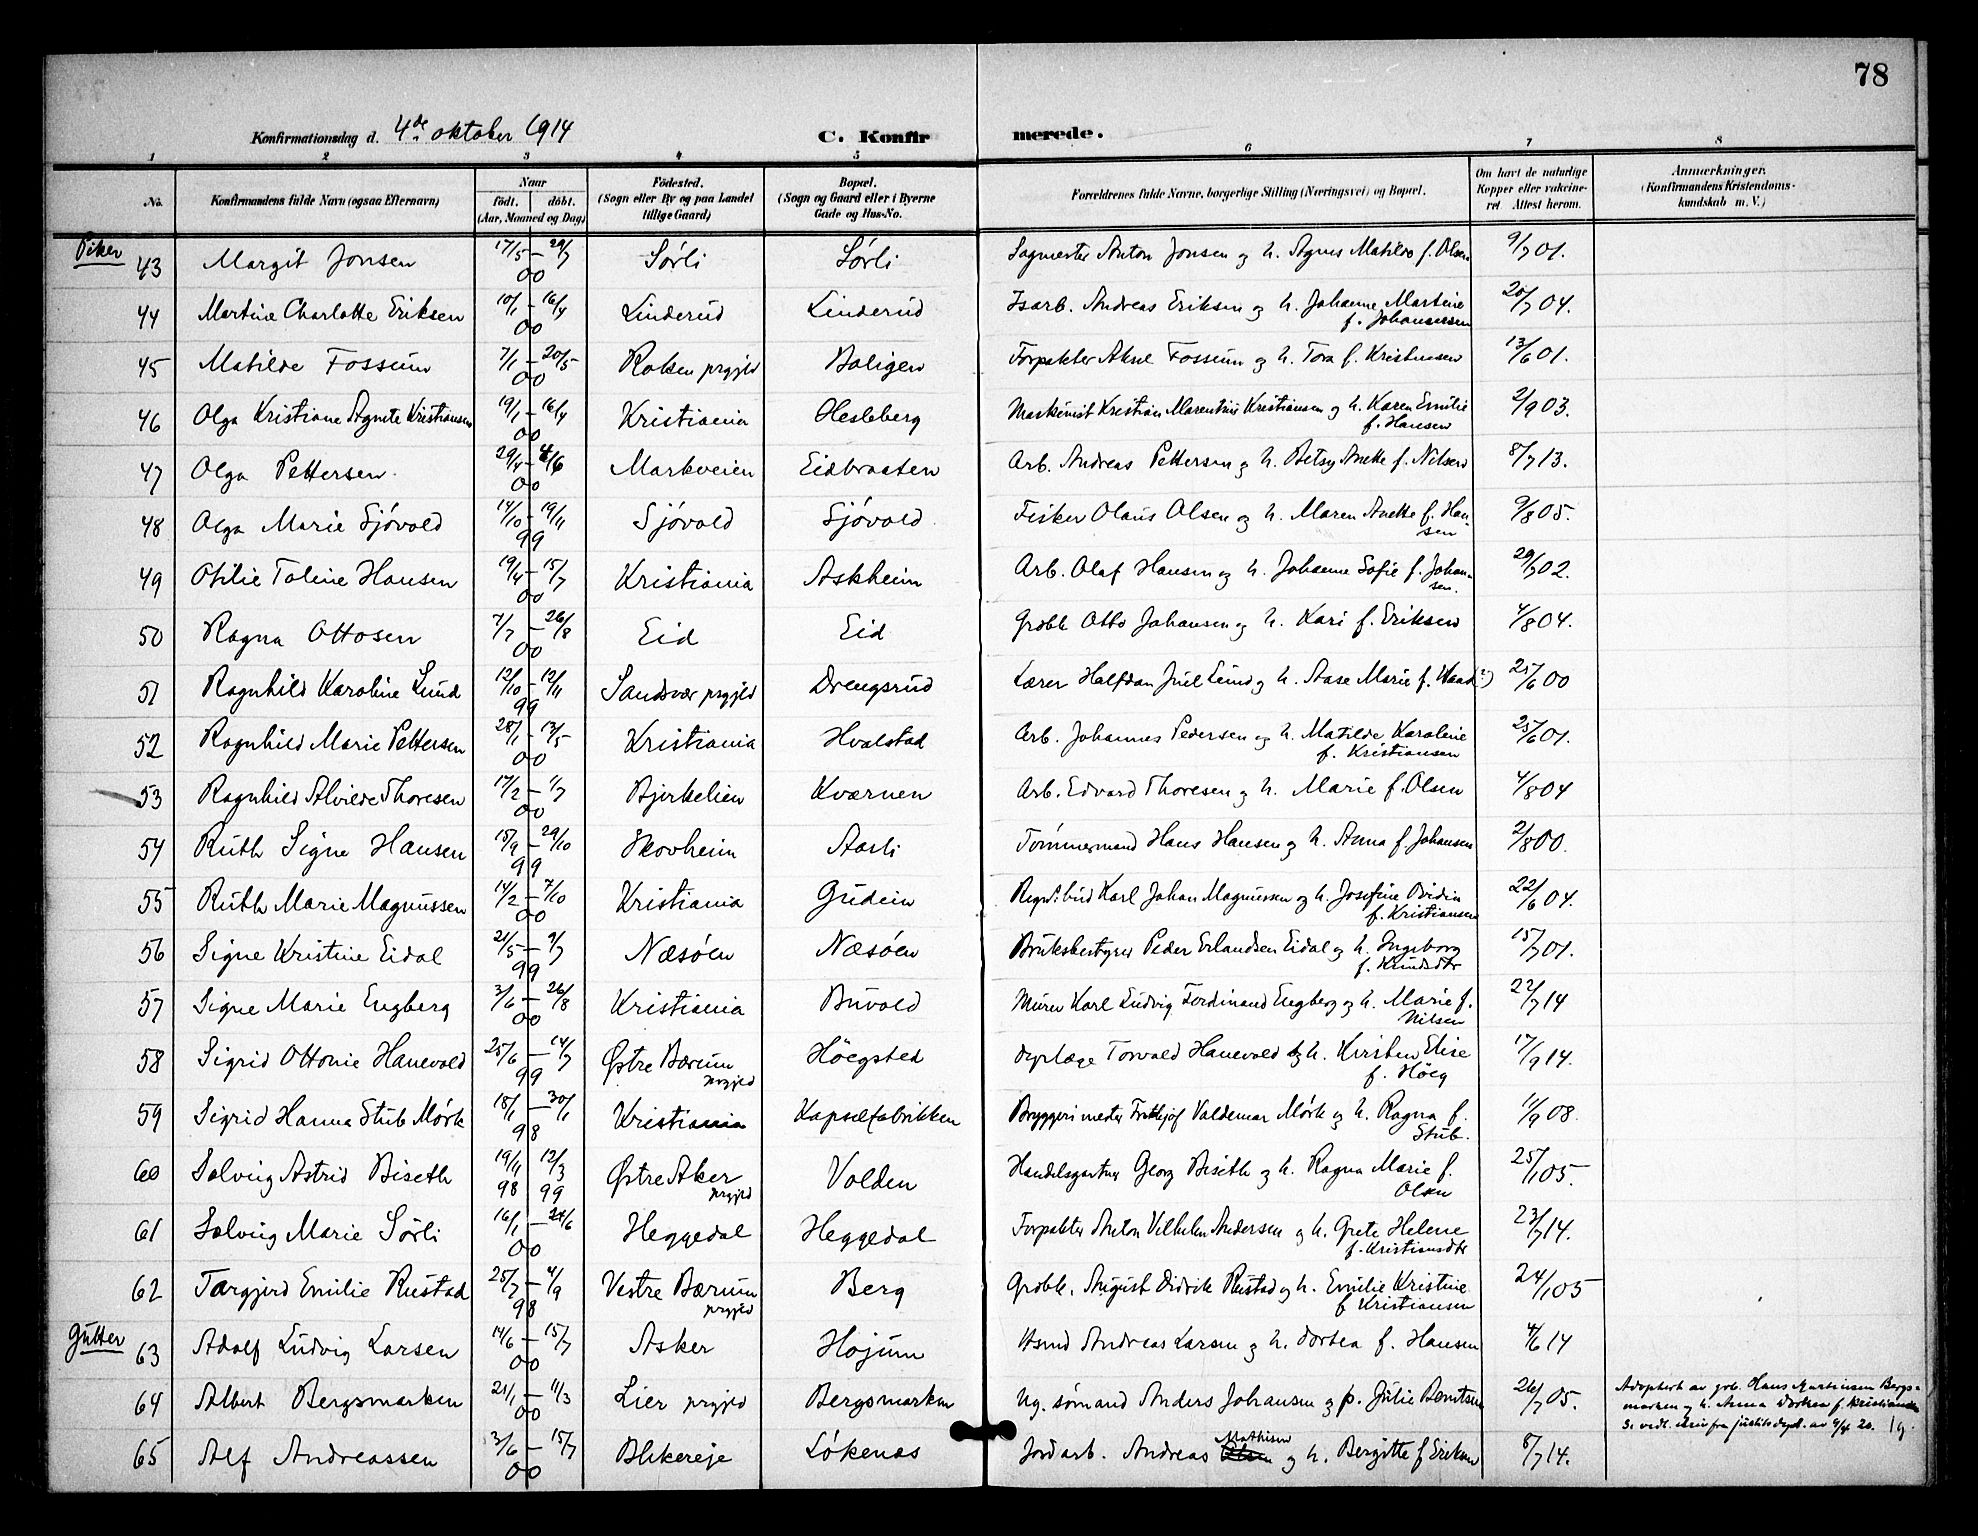 78
Konfirmationsdag d. 4de oktober 1914 C. Konfirmerede.
1 2 3 4 5 6 7 8
No. Konfirmandens fulde Navn (ogsaa Efternavn) Naar født. døbt. (Aar, Maaned og Dag) Fødested. (Sogn eller By og paa Landet tillige Gaard) Bopæl. (Sogn og Gaard eller i Byerne Gade og Hus-No. Forældrenes fulde Navne, borgerlige Stilling (Næringsvei) og Bopæl. Om havt de naturlige Kopper eller vakcineret Attest herom. Anmærkninger. (Konfirmandens Kristendomskundskab m. V.)
Piker
43 Margit Jonsen 17/5 – 29/7 00 Sørli Sørli Sagmester Anton Jonsen og h. Agnes Matilde f. Olsen 9/7 01.
44 Martine Charlotte Eriksen 10/1 – 16/4 00 Linderud Linderud Isarb. Andreas Eriksen og h. Johanne Martine f. Johannesen 20/7 04.
45 Matilde Fossum 7/1 – 20/5 00 Røken prgjld Boligen Forpakter Aksel Fossum og h. Tora f. Kristensen 13/6 01.
46 Olga Kristiane Agnete Kristiansen 19/1 – 16/4 00 Kristiania Hesleberg Maskinist Kristian Marentius Kristiansen og h. Karen Emilie f. Hansen 2/9 03.
47 Olga Pettersen 29/4 – 4/6 00 Markveien Eidbraaten Arb. Andreas Pettersen og h. Betsy Anette f. Nilsen 8/7 13.
48 Olga Marie Sjøvold 14/10 – 19/11 99 Sjøvold Sjøvold Fisker Olaus Olsen og h. Maren Anette f. Hansen 9/8 05.
49 Otilie Toline Hansen 19/4 – 15/7 00 Kristiania Askheim Arb. Olaf Hansen og h. Johanne Sofie f. Johansen. 29/7 02.
50 Ragna Ottosen 7/7 – 26/8 00 Eid Eid Grdbr. Otto Johansen og h. Kari f. Eriksen 4/8 04.
51 Ragnhild Karoline Lund 12/10 – 12/11 99 Sandsvær prgjld Drengsrud Lærer Halfdan Juel Lund og h. Aase Marie f. Waad(?) 25/6 00
52 Ragnhild Marie Pettersen 28/1 – 13/5 00 Kristiania Hvalstad Arb. Johannes Pedersen og h. Matilde Karoline f. Kristiansen 25/6 01.
53 Ragnhild Alvilde Thoresen 17/2 – 1/7 00 Bjerkelien Kværnen Arb. Edvard Thoresen og h. Marie f. Olsen 4/8 04
54 Ruth Signe Hansen 15/9 – 29/10 99 Skovheim Aasli Tømmermand Hans Hansen og h. Anna f. Johansen 2/8 00.
55 Ruth Marie Magnussen 14/2 – 7/10 00 Kristiania Gudein Regn.bud Karl Johan Magnussen og h. Josefine f. Kristiansen 22/6 04.
56 Signe Kristine Eidal 21/5 – 9/7 99 Næsøen Næsøen Bruksbestyrer Peder Erlandsen Eidal og h. Ingeborg f. Knudsdtr 15/7 01.
57 Signe Marie Engberg 3/6 – 26/8 00 Kristiania Buvold Murer Karl Ludvig Ferdinand Engberg og h. Marie f. Nilsen 22/7 14
58 Sigrid Ottonie Hanevold 25/6 – 14/7 99 Østre Bærum prgjld Høegsted Dyrlæge Torvald Hanevold og h. Kirsten Elise f. Høeg 17/9 14.
59 Sigrid Hanna Stub Mørk 18/1 – 30/1 98 Kristiania Kapselfabrikken Bryggerimester Frithjof Valdemar Mørk og h. Ragna f. Stub. 11/9 08.
60 Solveig Astrid Biseth 19/11 98 12/3 99 Østre Aker prgjld Volden Handelsgartner Georg Biseth og h. Ragna Marie f. Olsen 25/1 05.
61 Solveig Marie Sørli 16/1 – 24/6 00 Heggedal Heggedal Forpakter Anton Vilhelm Andersen og h. Grete Helene f. Kristiansdtr 23/7 14.
62 Targjerd Emilie Rustad 25/7 – 4/9 98 Vestre Bærum prgjld Berg Grdbr. August Didrik Rustad og h. Emilie Kristine f. Kristiansen 24/1 05
Gutter
63 Adolf Ludvig Larsen 14/6 – 15/7 00 Asker Højum Husmd Andreas Larsen og h. Dortea f. Hansen 4/6 14
64 Albert Bergsmarken 21/1 – 11/3 00 Lier prgjld Bergsmarken Ug. sømand Anders Johansen og p. Julie Berntsen 26/7 05. Adoptert av grb. Hans Martinsen Bergsmarken og h. Anna Dortea f. Kristiansen. Se vedl. skriv fra justitsdept. av 9/4 20.
65 Alf Andreassen 3/6 – 15/7 00 Blikereje Løkenes Jordarb. Andreas Mathisen og h. Bergitte f Eriksen 8/7 14.